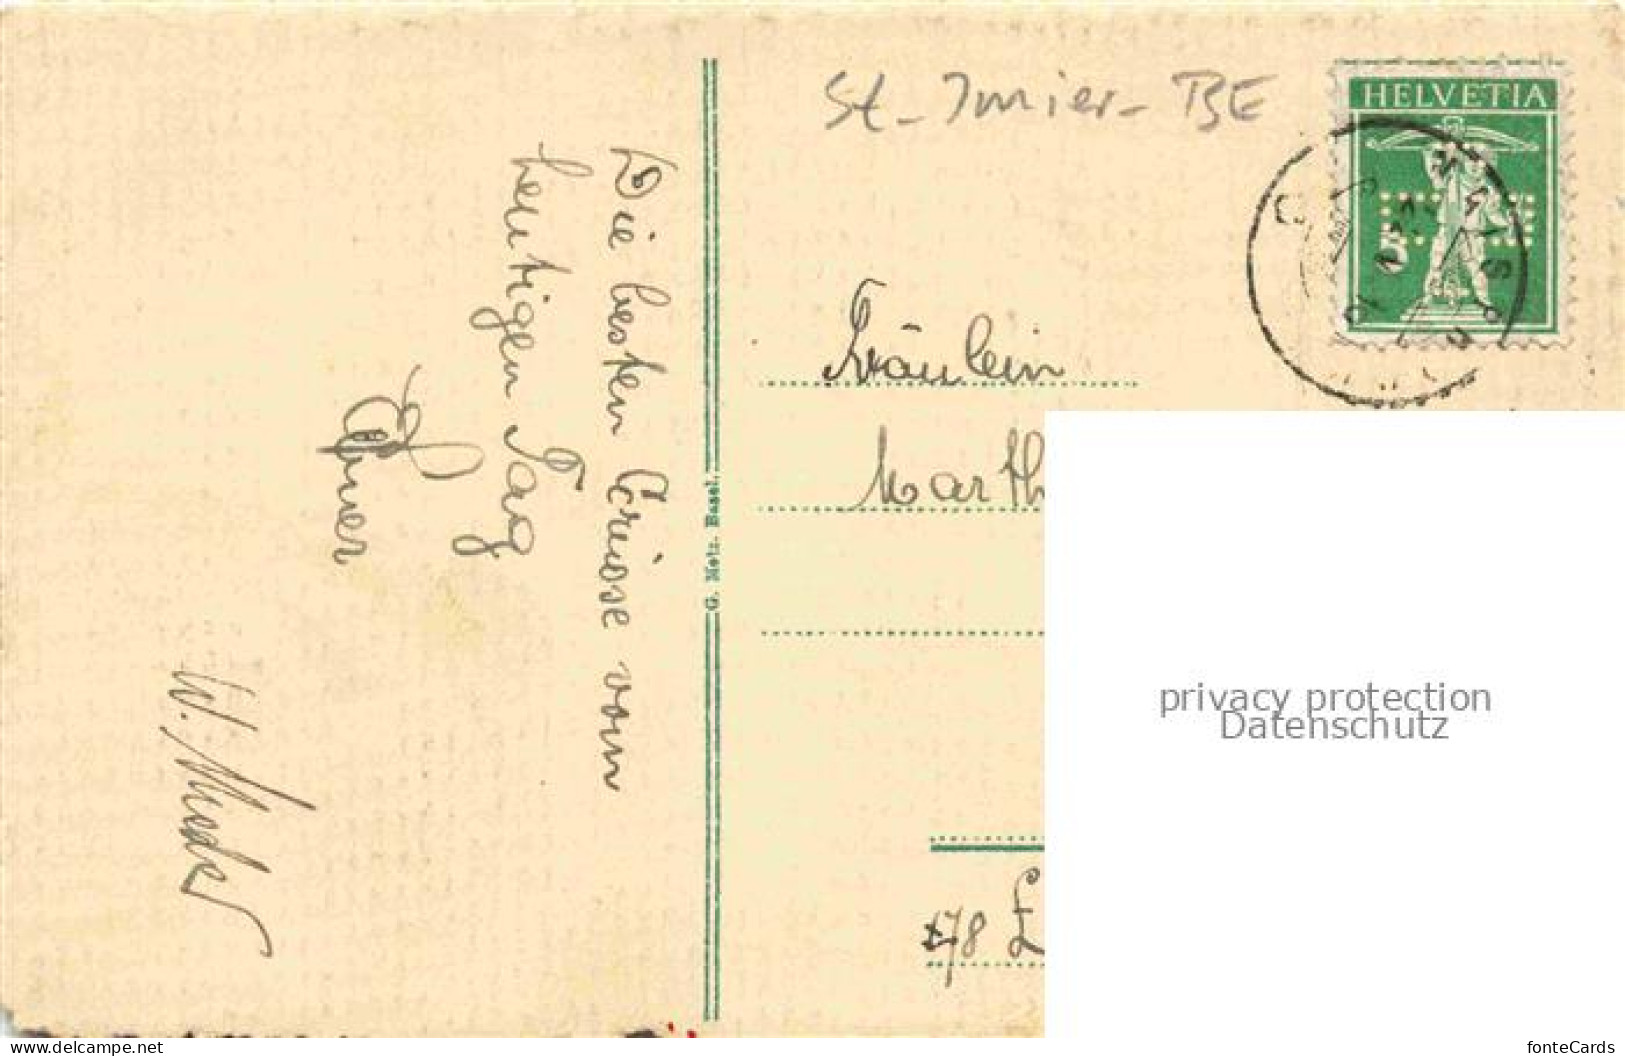 St-Imier-BE
HELVETIA
5
Die besten Grüsse vom
heutigen Tag
W.
G. Metz. Basel.
Fräulein
Marth
178
privacy protection
Datenschutz
www.delcampe.net
fonteCards